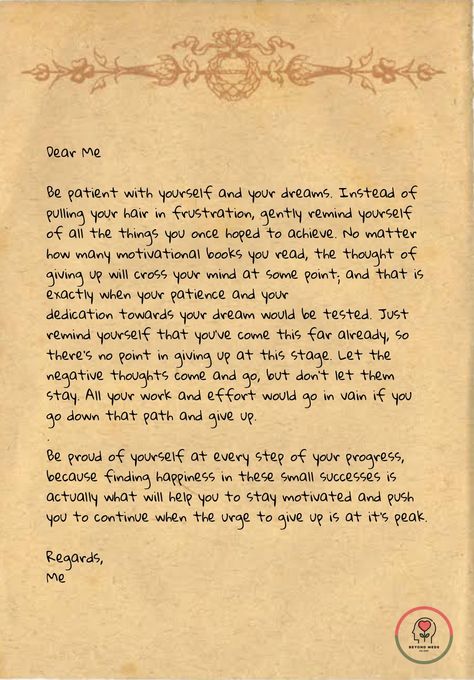 Dear Me
Be patient with yourself and your dreams. Instead of
pulling your hair in frustration, gently remind yourself
of all the things you once hoped to achieve. No matter
how many motivational books you read, the thought of
giving up will cross your mind at some point; and that is
exactly when your patience and your
dedication towards your dream would be tested. Just
remind yourself that you've come this far already, so
there's no point in giving up at this stage. Let the
negative thoughts come and go, but don't let them
stay. All your work and effort would go in vain if you
go down that path and give up.
.
Be proud of yourself at every step of your progress,
because finding happiness in these small successes is
actually what will help you to stay motivated and push
you to continue when the urge to give up is at it's peak.
Regards,
Me
BEYOND MEDS